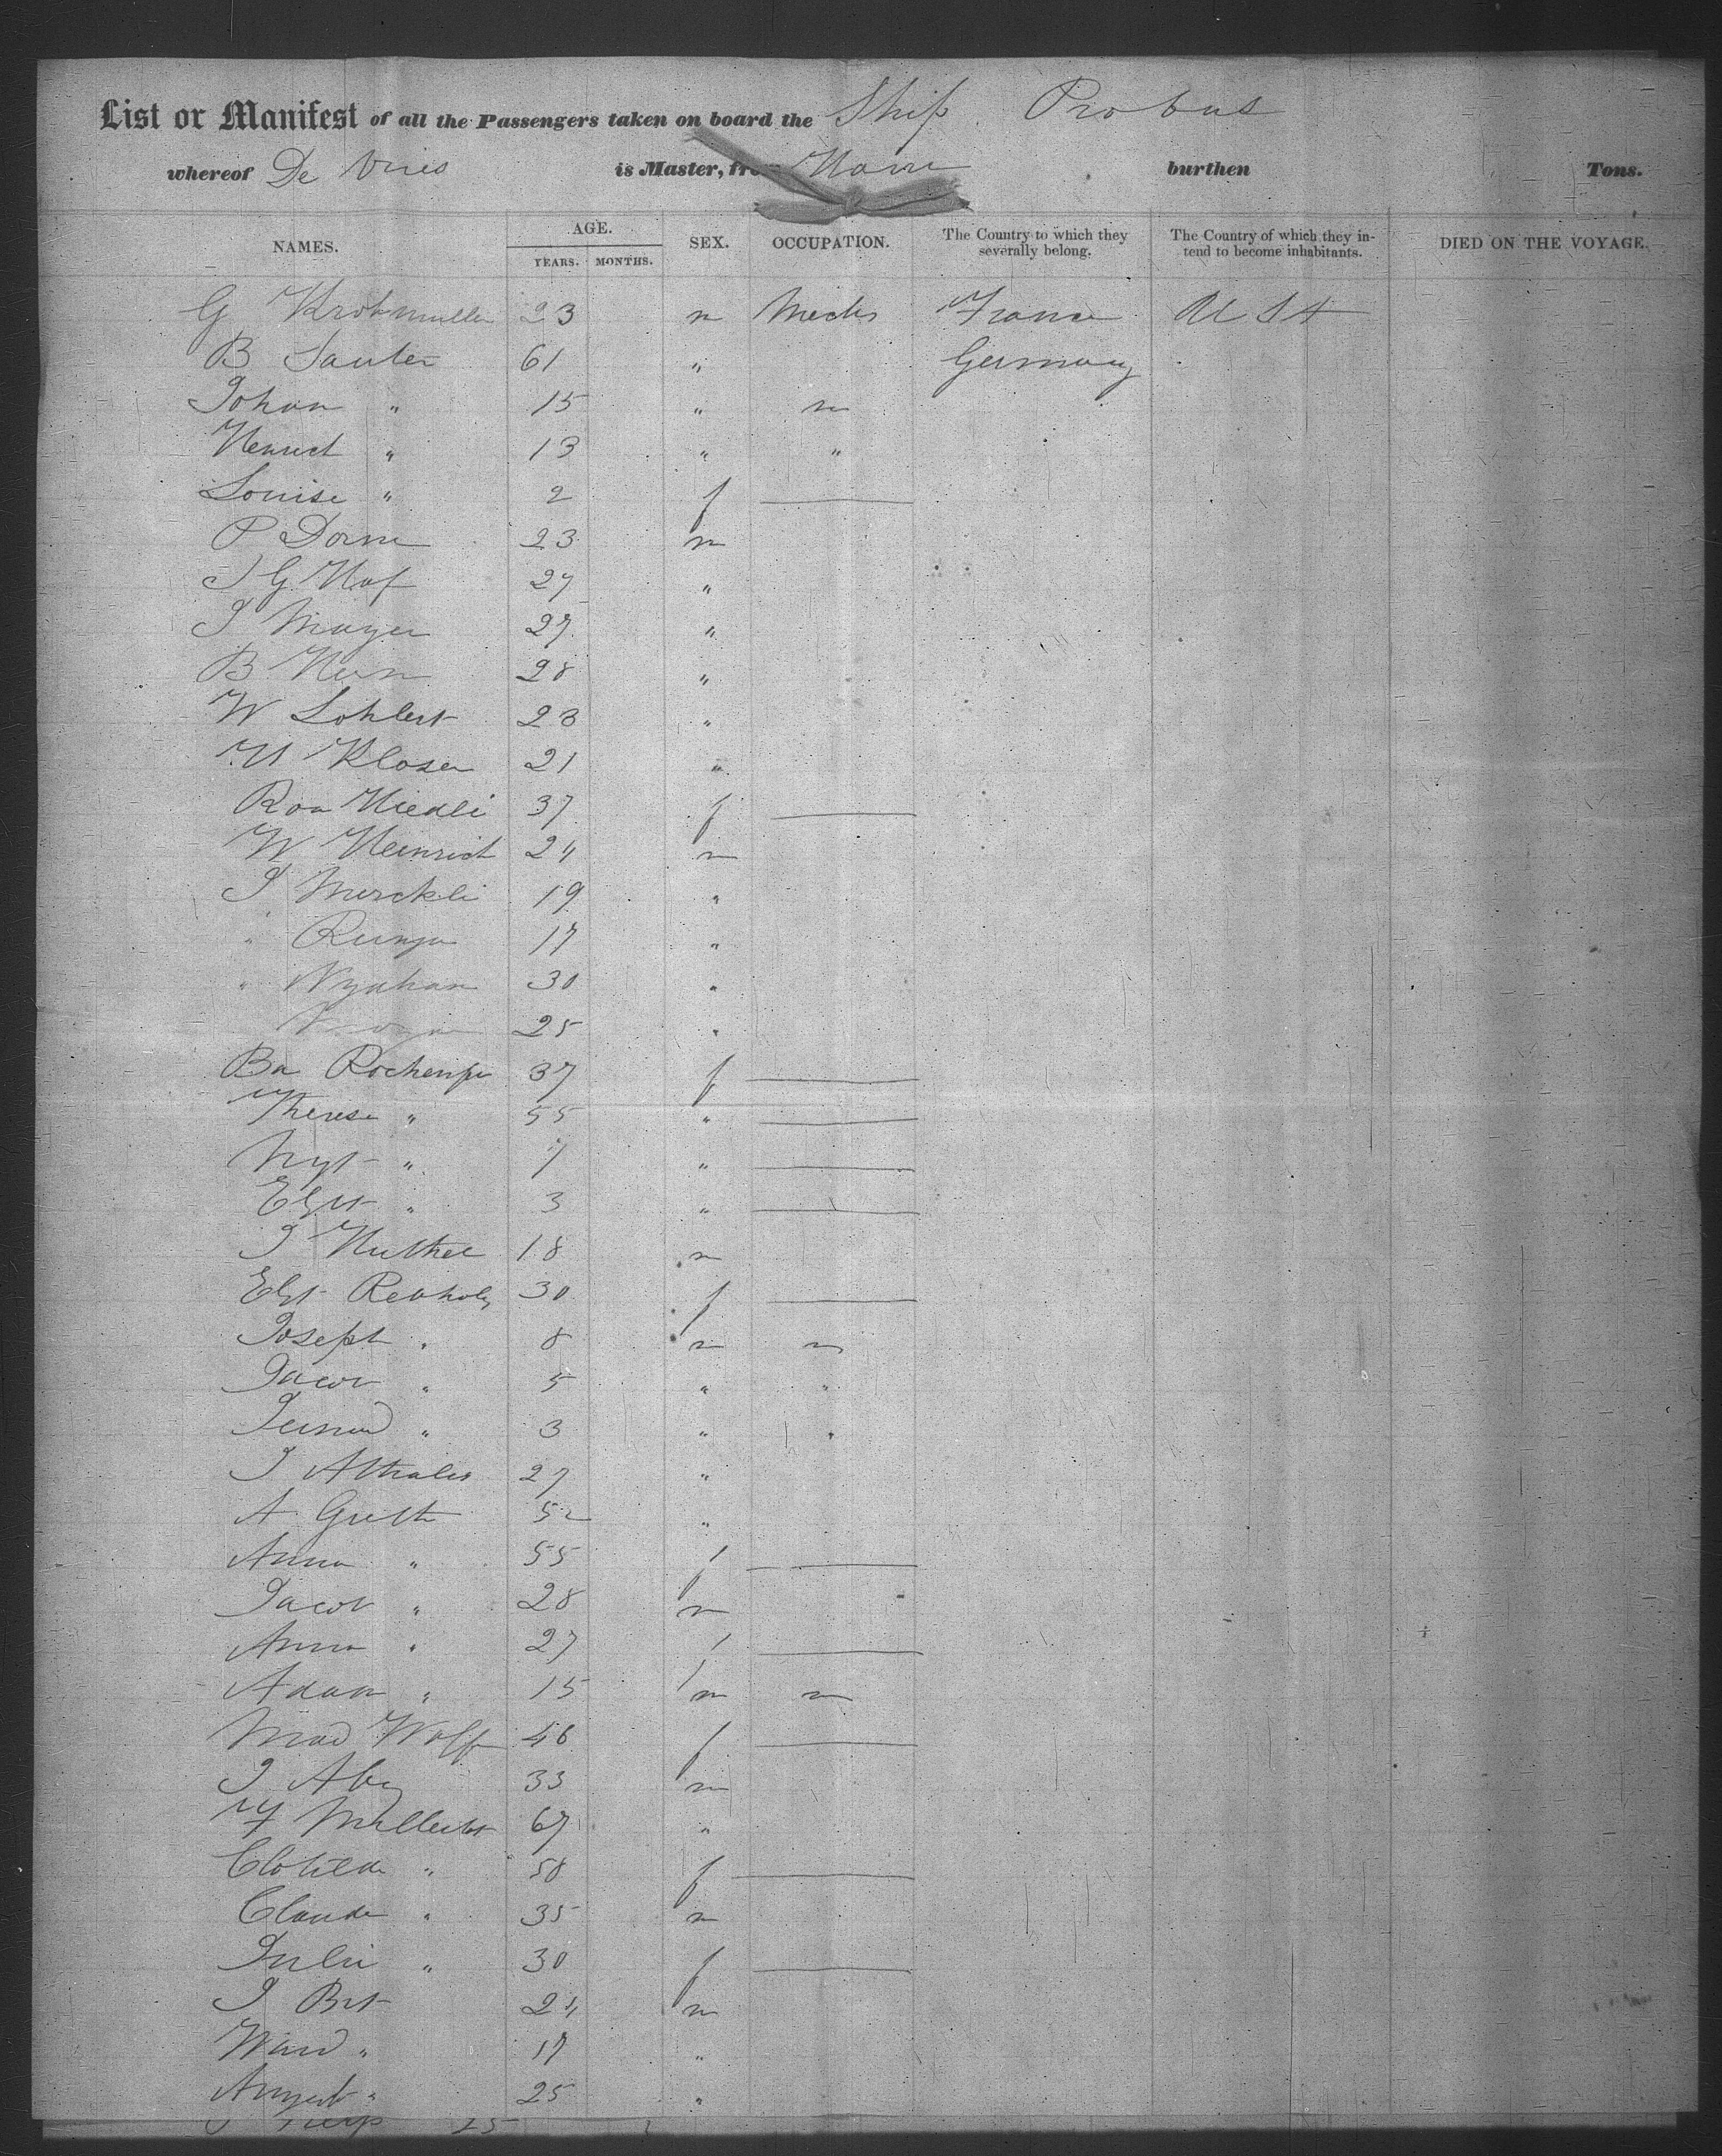 List or Manifest of all the Passengers taken on board the Ship Probus
whereof De Vries is Master, from Havre burthen Tons.
NAMES. AGE. YEARS. MONTHS. SEX. OCCUPATION. The Country to which they severally belong. The Country of which they intend to become inhabitants. DIED ON THE VOYAGE.
G Krotmuller 23 m Mechs France U St
B Sauter 61 " Germany
Johan " 15 " m
Henrich " 13 " "
Louise " 2 f
P Dorm 23 m
J G Hof 27 "
J Mayer 27 "
B Hern 28 "
W Lohlert 23 "
H Kloser 21 "
Roa Hiedli 37 f
W Heinrich 24 m
J Merckli 19 "
" 17 "
" 30 "
25 "
Ba Rochenfu 37 f
Therese " 55 "
" 7 "
Elzt " 3 "
J Huther 18 m
Elzt Rebholz 30 f
Joseph " 8 m m
Jacob " 5 " "
" 3 " "
J Athaler 27 "
A Guth 52 "
Anna " 55 f
Jacob " 28 m
Anna " 27 f
Adam " 15 m m
Mad Wolff 46 f
J Aby 33 m
F 67 "
Clotilde " 58 f
Claude " 35 m
Julie " 30 f
J Brt 24 m
" 17 "
August " 25 "
25